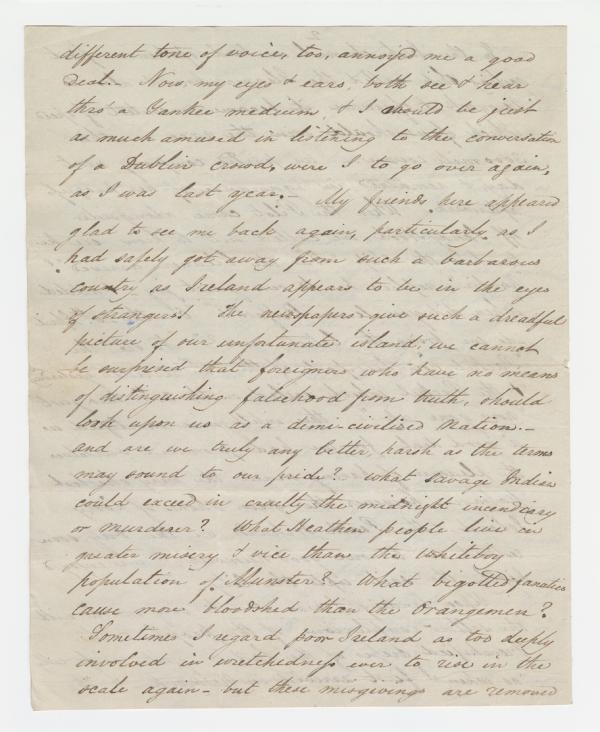 different tone of voice, too, annoyed me a good
deal.- Now, my eyes & ears, both see & hear
thro' a Yankee medium, & I should be just
as much amused in listening to the conversation
of a Dublin crowd, were I to go over again,
as I was last year.- My friends here appeared
glad to see me back again, particularly as I
had safely got away from such a barbarous
country as Ireland appears to be in the eyes
of strangers! The newspapers give such a dreadful
picture of our unfortunate island; we cannot
be surprised that foreigners who have no means
of distinguishing falsehood from truth, should
look upon us as a demi-civilized nation.-
and are we truly any better, harsh as the terms
may sound to our pride? what savage Indian
could exceed in cruelty the midnight incendiary
or murderer? What Heathen people live in
greater misery & vice than the whiteboy
population of Munster? What bigotted fanatics
cause more bloodshed than the Orangemen?
Sometimes I regard poor Ireland as too deeply
involved in wretchedness ever to rise in the
scale again - but these misgivings are removed